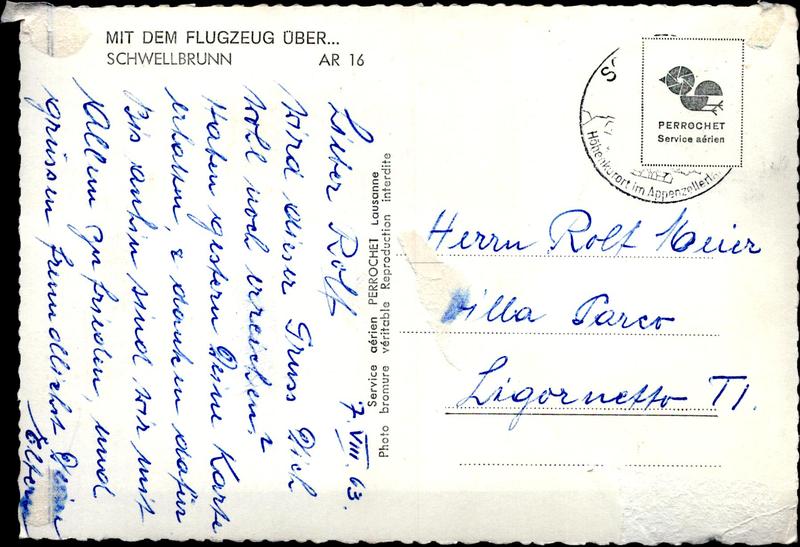 MIT DEM FLUGZEUG ÜBER...
SCHWELLBRUNN AR 16
7. VIII. 63.
Lieber Rolf
Wird dieser Gruss Dich
wohl noch erreichen?
Haben gestern Deine Karte
erhalten, & danken dafür
Bis anhin sind wir mit
Allem zufrieden, und
grüssen freundlichst Deine
Eltern
Service aérien PERROCHET Lausanne
Photo bromure véritable Reproduction interdite
PERROCHET
Service aérien
Höhenkurort im Appenzellerl
Herrn Rolf Meier
Villa Parco
Ligornetto TI.